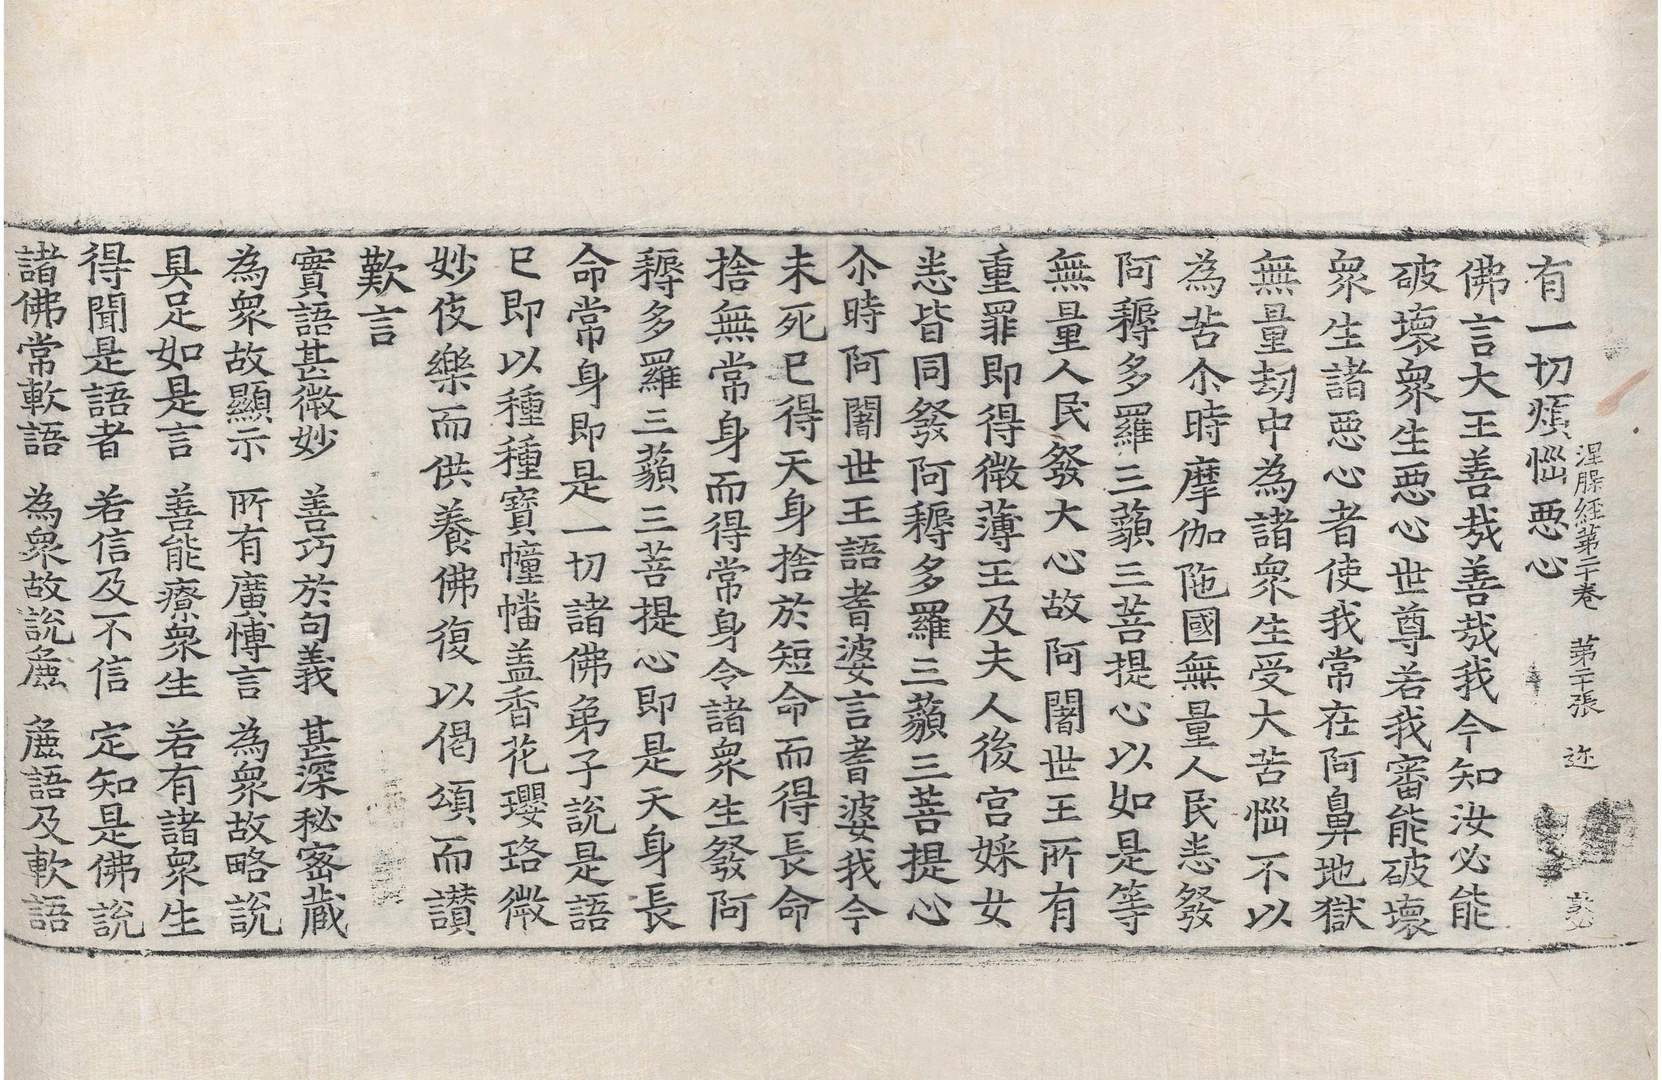 有一切煩惱惡心
涅脲經第二十卷 第二十張 迩
佛言大王善㢤善㢤我今知汝必能
破壞衆生惡心世尊若我審能破壞
衆生諸惡心者使我常在阿鼻地獄
無量劫中為諸衆生受大苦惱不以
為苦尒時摩伽陁國無量人民悉發
阿耨多羅三藐三菩提心以如是等
無量人民發大心故阿闍世王所有
重罪即得微薄王及夫人後宮婇女
悉皆同發阿耨多羅三藐三菩提心
尒時阿闍世王語耆婆言耆婆我今
未死已得天身捨於短命而得長命
捨無常身而得常身令諸衆生發阿
耨多羅三藐三菩提心即是天身長
命常身即是一切諸佛弟子說是語
已即以種種寶幢幡盖香花瓔珞微
妙伎樂而供養佛復以偈頌而讃
歎言
實語甚微妙 善巧於句義 甚深秘密蔵
為衆故顯示 所有廣愽言 為衆故略說
具足如是言 善能療衆生 若有諸衆生
得聞是語者 若信及不信 定知是佛說
諸佛常軟語 為衆故說麁 麁語及軟語